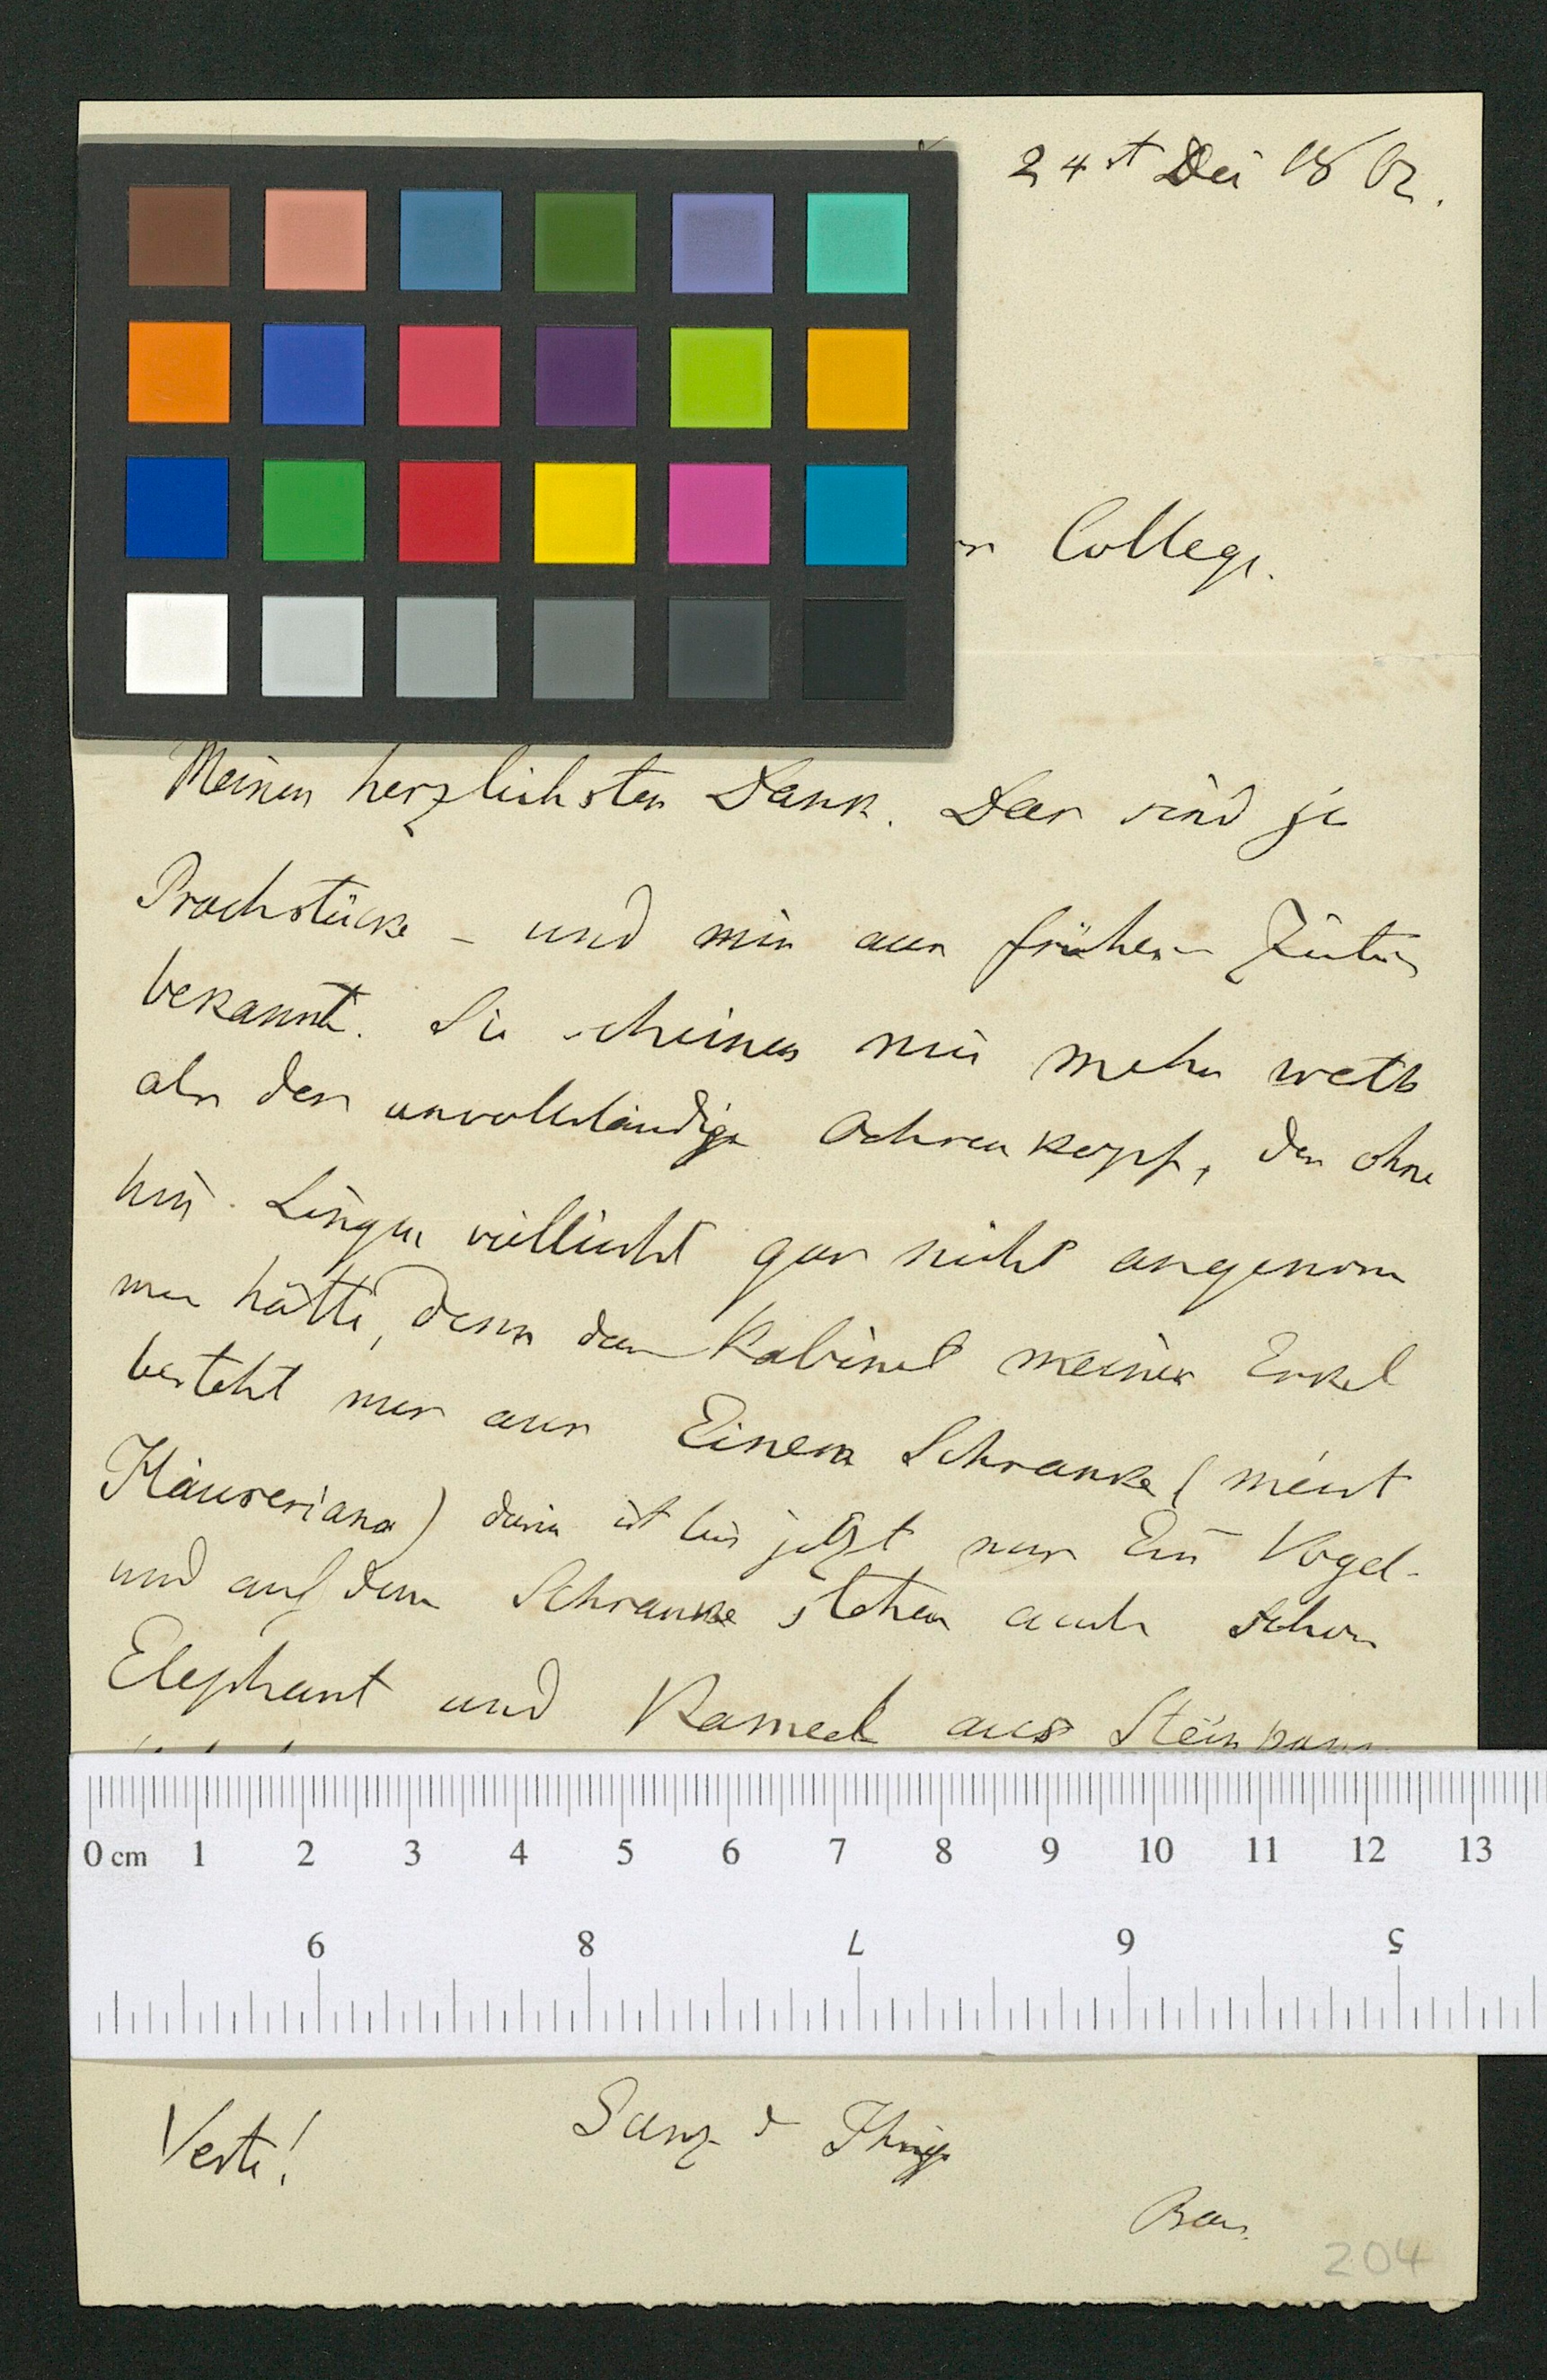 24st Dei 1862.
College.
Meinen herzlichsten Dank. Das sind ja
Prachstücke – und mir aus frühern Zeiten
bekannt. Sie scheinen mir mehr werth
als der unvollständige Ochsenkopf, den ohne
hin vielleicht gar nicht angenom
men hätte, denn das Kabinet meiner Enkel
besteht nur aus Einem Schranke (meist
) darin ist bis jetzt nur Ein Vogel-
und auf dem Schranke stehen auch schon
Elephant und Kameel aus Steinpapp
0 cm 1 2 3 4 5 6 7 8 9 10 11 12 13
9 8 7 6 5
Verte! Ganz d Ihrige
204